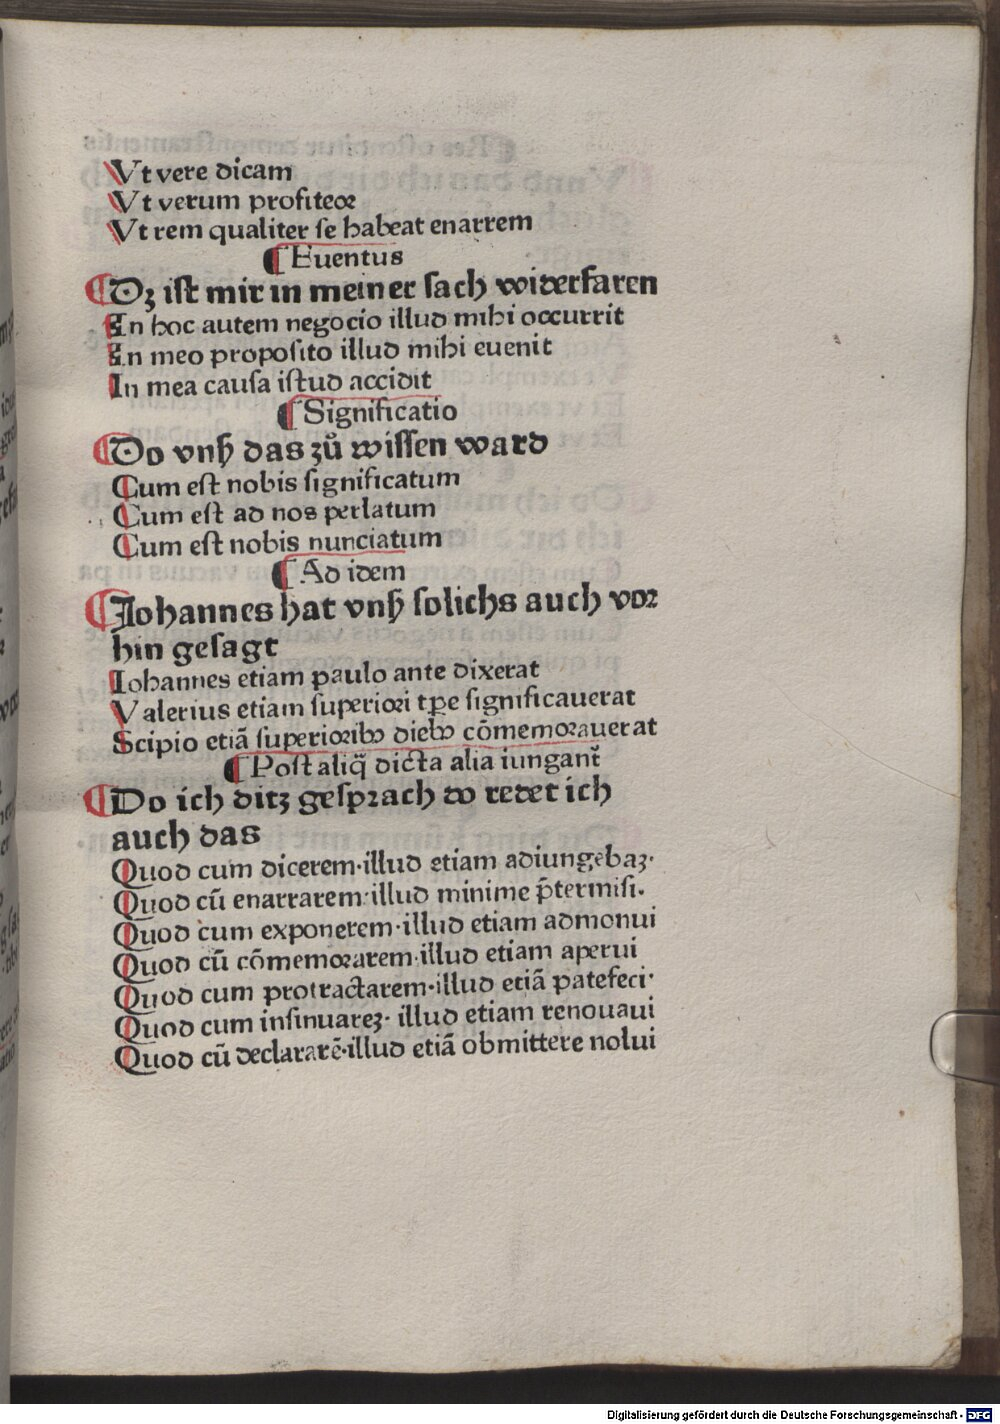 Vt vere dicam
Vt verum profiteor
Vt rem qualiter se habeat enarrem
¶ Euentus
¶ Dꝫ ist mir in meiner sach widerfaren
In hoc autem negocio illud mihi occurrit
In meo proposito illud mihi euenit
In mea causa istud accidit
¶ Significatio
¶ Do vnß das zů wissen ward
Cum est nobis significatum
Cum est ad nos perlatum
Cum est nobis nunciatum
¶ Ad idem
¶ Johannes hat vnß solichs auch vor
hin gesagt
Iohannes etiam paulo ante dixerat
Valerius etiam superiori tꝑe significauerat
Scipio etiā superioribꝰ diebꝰ cōmemorauerat
¶ Post aliq̄ dicta alia iungant᷑
¶ Do ich ditz gesprach do redet ich
auch das
Quod cum dicerem·illud etiam adiungebaꝫ·
Quod cū enarrarem·illud minime p̄termisi·
Quod cum exponerem·illud etiam admonui
Quod cū cōmemorarem·illud etiam aperui
Quod cum protractarem·illud etiā patefeci·
Quod cum insinuareꝫ· illud etiam renouaui
Quod cū declararē·illud etiā obmittere nolui
Digitalisierung gefördert durch die Deutsche Forschungsgemeinschaft - DFG